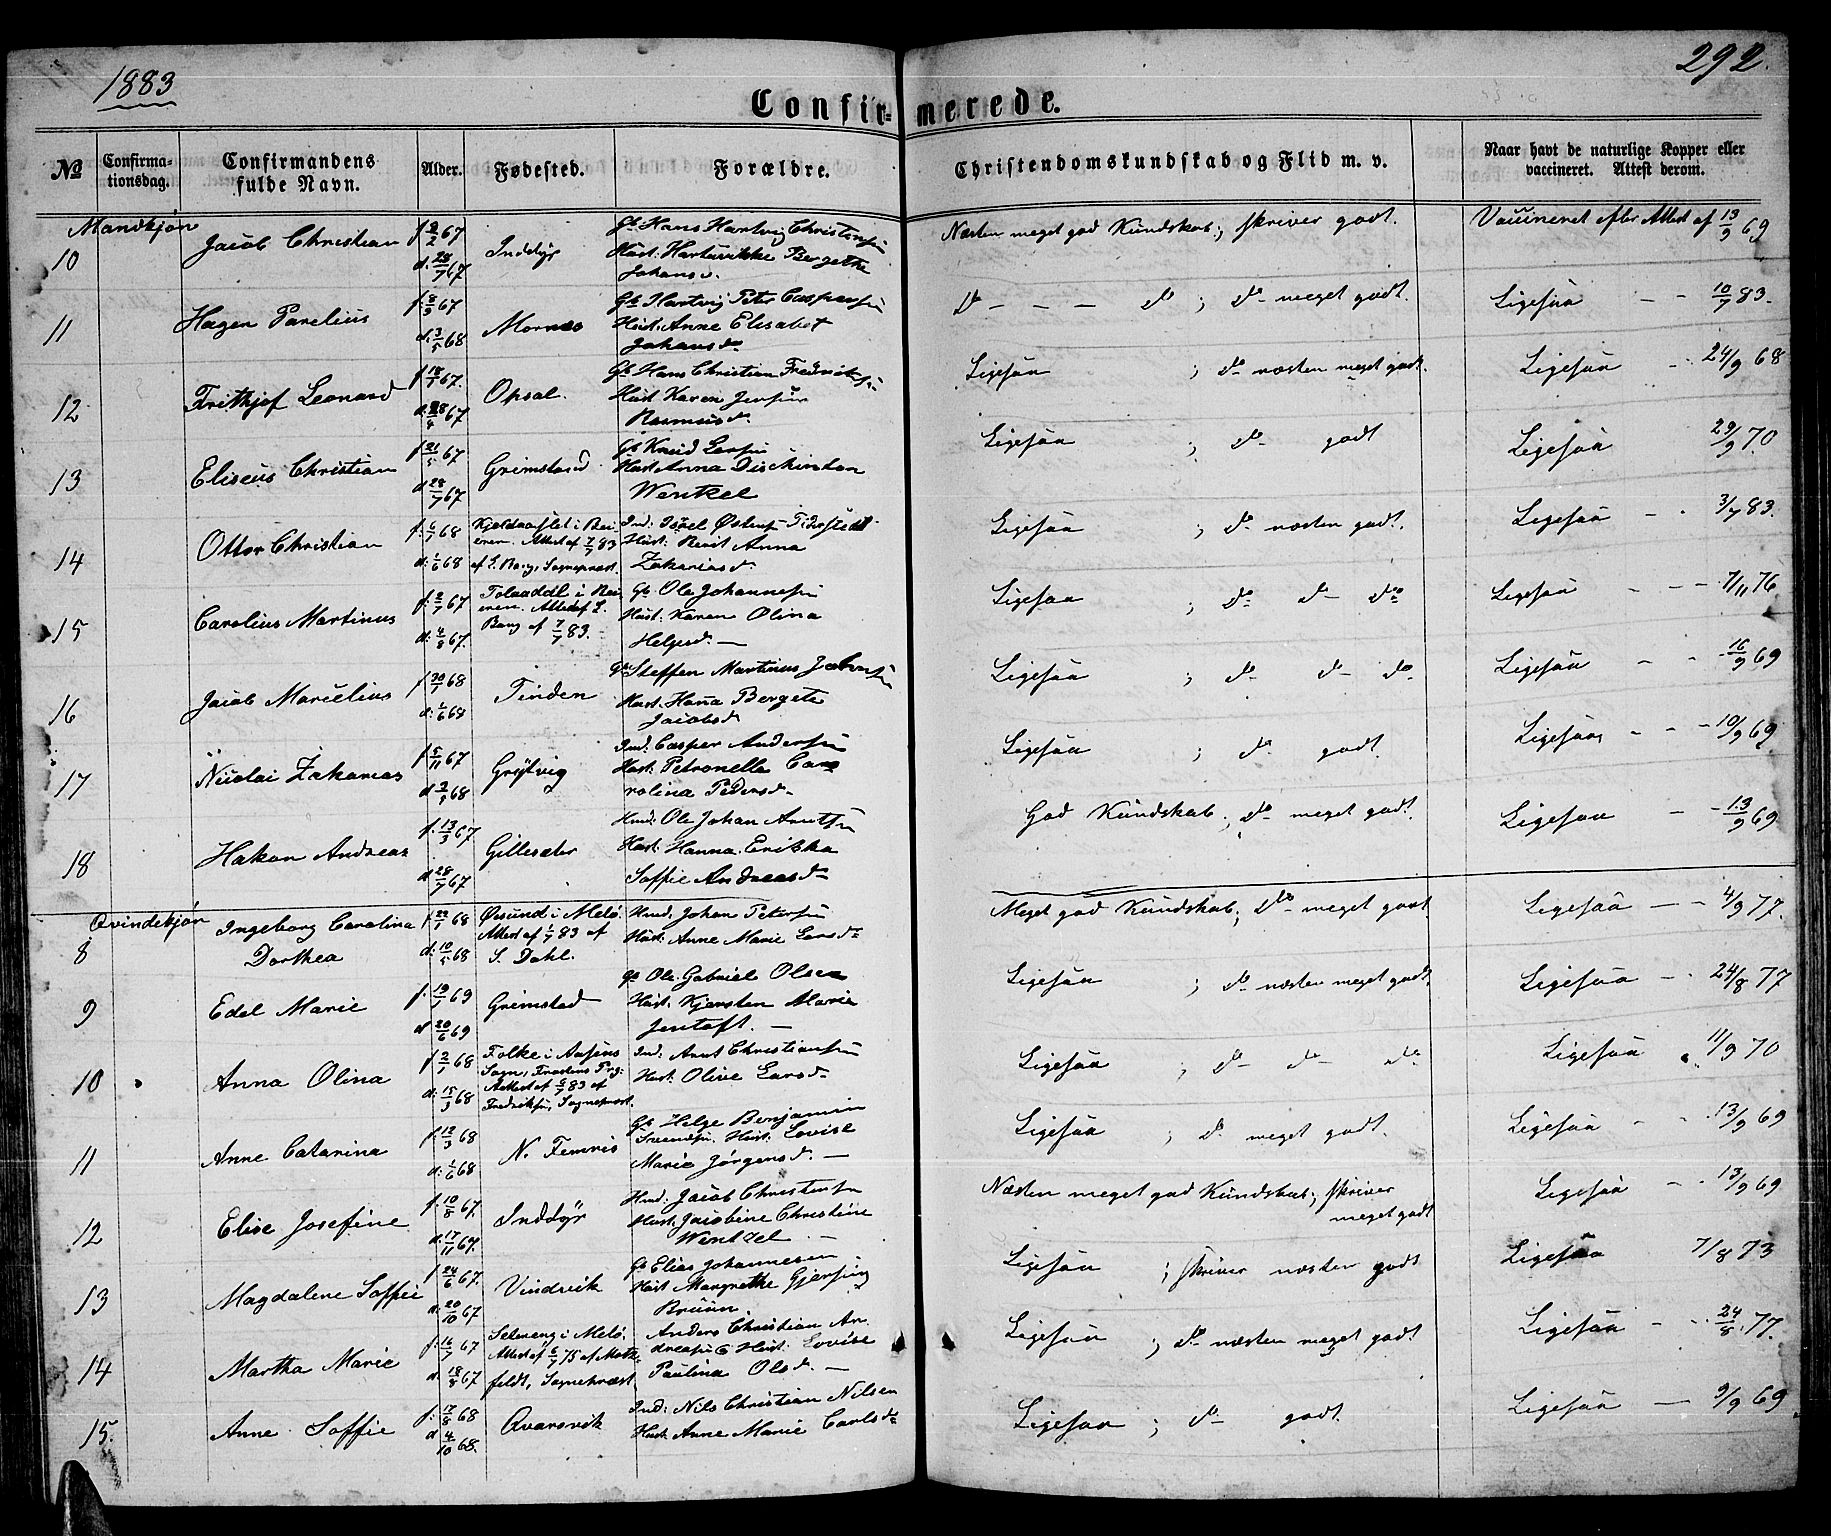 1883
292.
Confirmerede.
No
Confirmationsdag.
Confirmandens fulde Navn.
Alder.
Fødested.
Forældre.
Christendomskundskab og Flid m. v.
Naar havt de naturlige Kopper eller vaccineret. Attest derom.
Mandkjøn
10 Jacob Christian f. 2/2 67 d. 28/7 67 Inddyr Gb. Hans Hartvig Christensen Hust. Hartvikke Bergethe Johansd. Næsten meget god Kundskab; skriver godt. Vaccineret efter Attest af 13/9 69
11 Hagen Parelius f. 8/9 67 d. 3/5 68 Mornes Gb. Hartvig Peter Caspersen Hust. Anne Elisabet Johansd. Do - - - do ; do meget godt. Ligesaa - - 10/7 83.
12 Frithjof Leonard f. 18/1 67. d. 28/4 67 Opsal. Gb. Hans Christian Fredriksen Hust. Karen Jensine Rasmusd. Ligesaa ; do næsten meget godt. Ligesaa - 24/9 68
13 Eliseus Christian f. 21/5 67 d. 28/7 67 Grimstad Gb. Knud Larsen Hust. Anna Dischinton Wentzel Ligesaa ; do godt Ligesaa 29/9 70.
14 Ottor Christian f. 6/1 68 d. 1/6 68 Kjeldaaslet i Beieren. Attest af 7/7 83 af S. Bang, Sogneprest. Ind. Israel Østensen Hust. Berit Anna Zakariasd. Ligesaa ; do næsten godt. Ligesaa - 3/7 83.
15 Carolius Martinus f. 2/7 67 d. 4/8 67. Tolaadal i Beieren. Attest af S. Bang af 7/7 83. Gb. Ole Johannesen Hust. Karen Olina Helgesd. — Ligesaa ; do do do Ligesaa - - 7/11 76
16 Jacob Marselius f. 30/1 68 d. 1/6 68 Tinden Gb. Steffen Martinus Johnsen Hust. Hana Bergete Jacobsd. Ligesaa ; do do do. Ligesaa - - 16/9 69
17 Nicolai Zakarias f. 5/11 67 d. 3/5 68 Grytvig Ind. Casper Andersen Hust. Petronella Carolina Pedersd. Ligesaa ; do godt. Ligesaa - - 10/9 69
18 Hakon Andreas f. 13/3 67 d. 28/7 67 Gillesæter Hmd. Ole Johan Arntsen Hust. Hanna Erikka Soffie Andreasd. God Kundskab; do meget godt. Ligesaa - 13/9 69
Qvindekjøn
8 Ingeborg Carolina Dorthea f. 22/1 68 d. 10/5 68 Øsund i Melø. Attest af 1/7 83 af S. Dahl. Hmd. Johan Petersen Hust. Anne Marie Larsd. Meget god Kundskab; do meget godt Ligesaa — 4/9 77.
9 Edel Marie f. 19/1 69 d. 20/6 69 Grimstad Gb. Ole Gabriel Olsen Hust. Kjersten Marie Jentoft. — Ligesaa ; do næsten meget godt. Ligesaa — 24/8 77
10 Anna Olina f. 2/1 68 d. 15/3 68 Folke i Aasens Sogn, Frostens Prg. Attest af 6/7 83 af Fredriksen, Sogneprest. Ind. Arnt Christiansen Hust. Olive Larsd. Ligesaa ; do do do. Ligesaa 11/9 70
11 Anne Catarina f. 12/3 68 d. 1/6 68 N. Femris Gb. Helge Benjamin Svendsen. Hust. Lovise Marie Jørgensd. — Ligesaa ; do meget godt. Ligesaa - 13/9 69
12 Elise Josefine f. 10/8 67. d. 17/11 67. Inddyr Hmd. Jacob Christensen Hust. Jacobine Christine Wentzel. - Næsten meget god Kundskab; skriver meget godt Ligesaa - 13/9 69
13 Magdalene Soffie f. 24/6 67. d. 20/10 67 Vindvik Gb. Elias Johannesen Hust. Margrethe Gjersine Bruun Ligesaa ; skriver næsten godt Ligesaa 7/8 73
14 Martha Marie f. 16/7 67 d. 18/8 67 Selvreng i Melø. Attest af 6/7 75 af Motzfeldt, Sogneprest. Anders Christian Andreasen & Hust. Lovise Paulina Olsd. — Ligesaa ; do næsten meget godt Ligesaa - 24/8 77.
15. Anne Soffie f. 17/8 68 d. 4/10 68. Qvarsvik Ind. Nils Christian Nilsen Hust. Anne Marie Carlsd. Ligesaa ; do godt. Ligesaa — 9/9 69